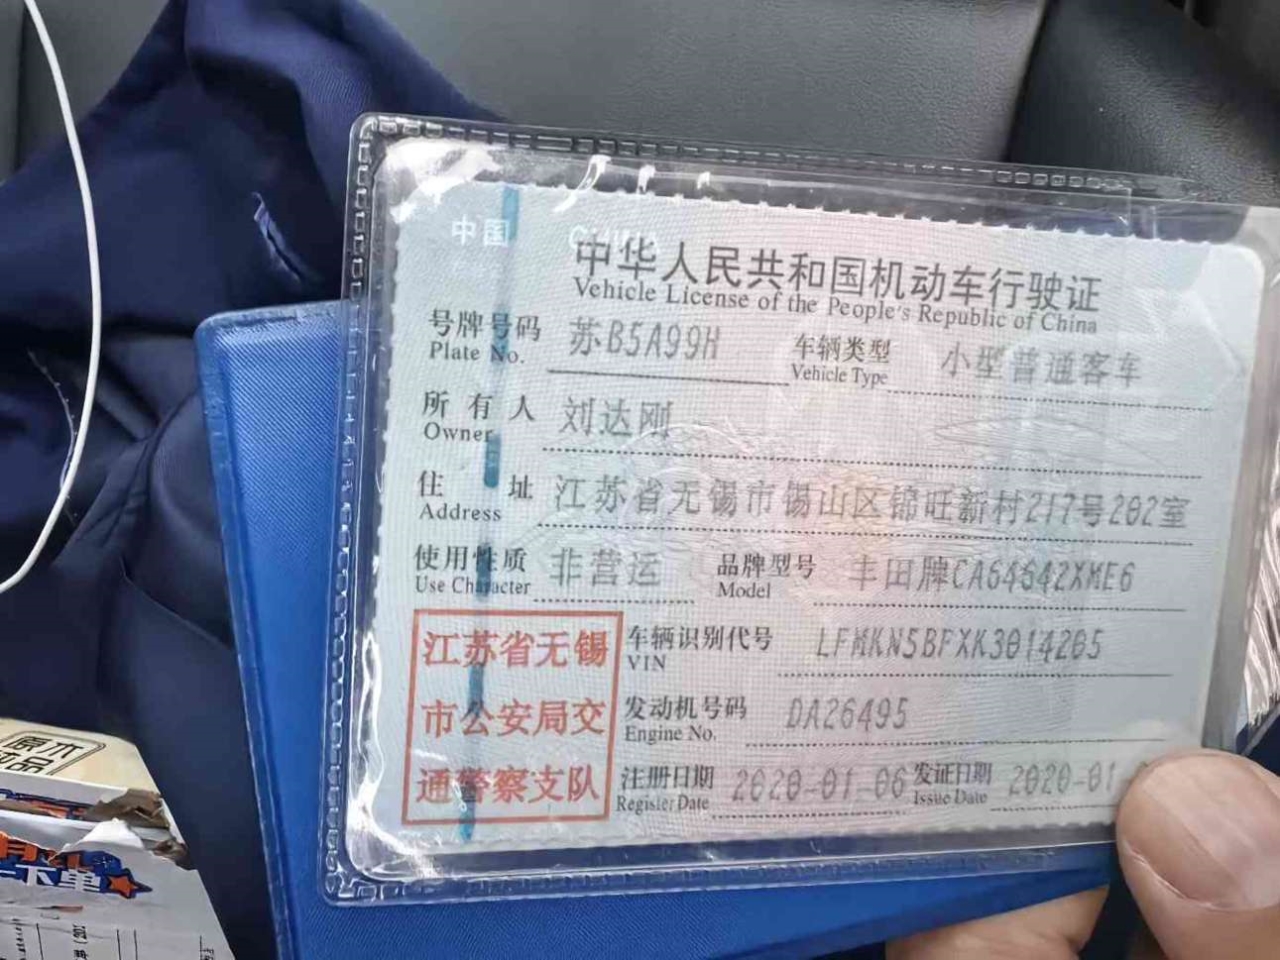 中国 CHINA
中华人民共和国机动车行驶证
Vehicle License of the People's Republic of China
号牌号码 苏B5A99H 车辆类型 小型普通客车
Plate No. Vehicle Type
所有人 刘达刚
Owner
住址 江苏省无锡市锡山区锦旺新村217号202室
Address
使用性质 非营运 品牌型号 丰田牌CA64642XME6
Use Character Model
江苏省无锡
市公安局交
通警察支队
车辆识别代号 LFMKN5BFXK3014205
VIN
发动机号码 DA26495
Engine No.
注册日期 2020-01-06 发证日期 2020-01
Register Date Issue Date
原木
纯品
下单